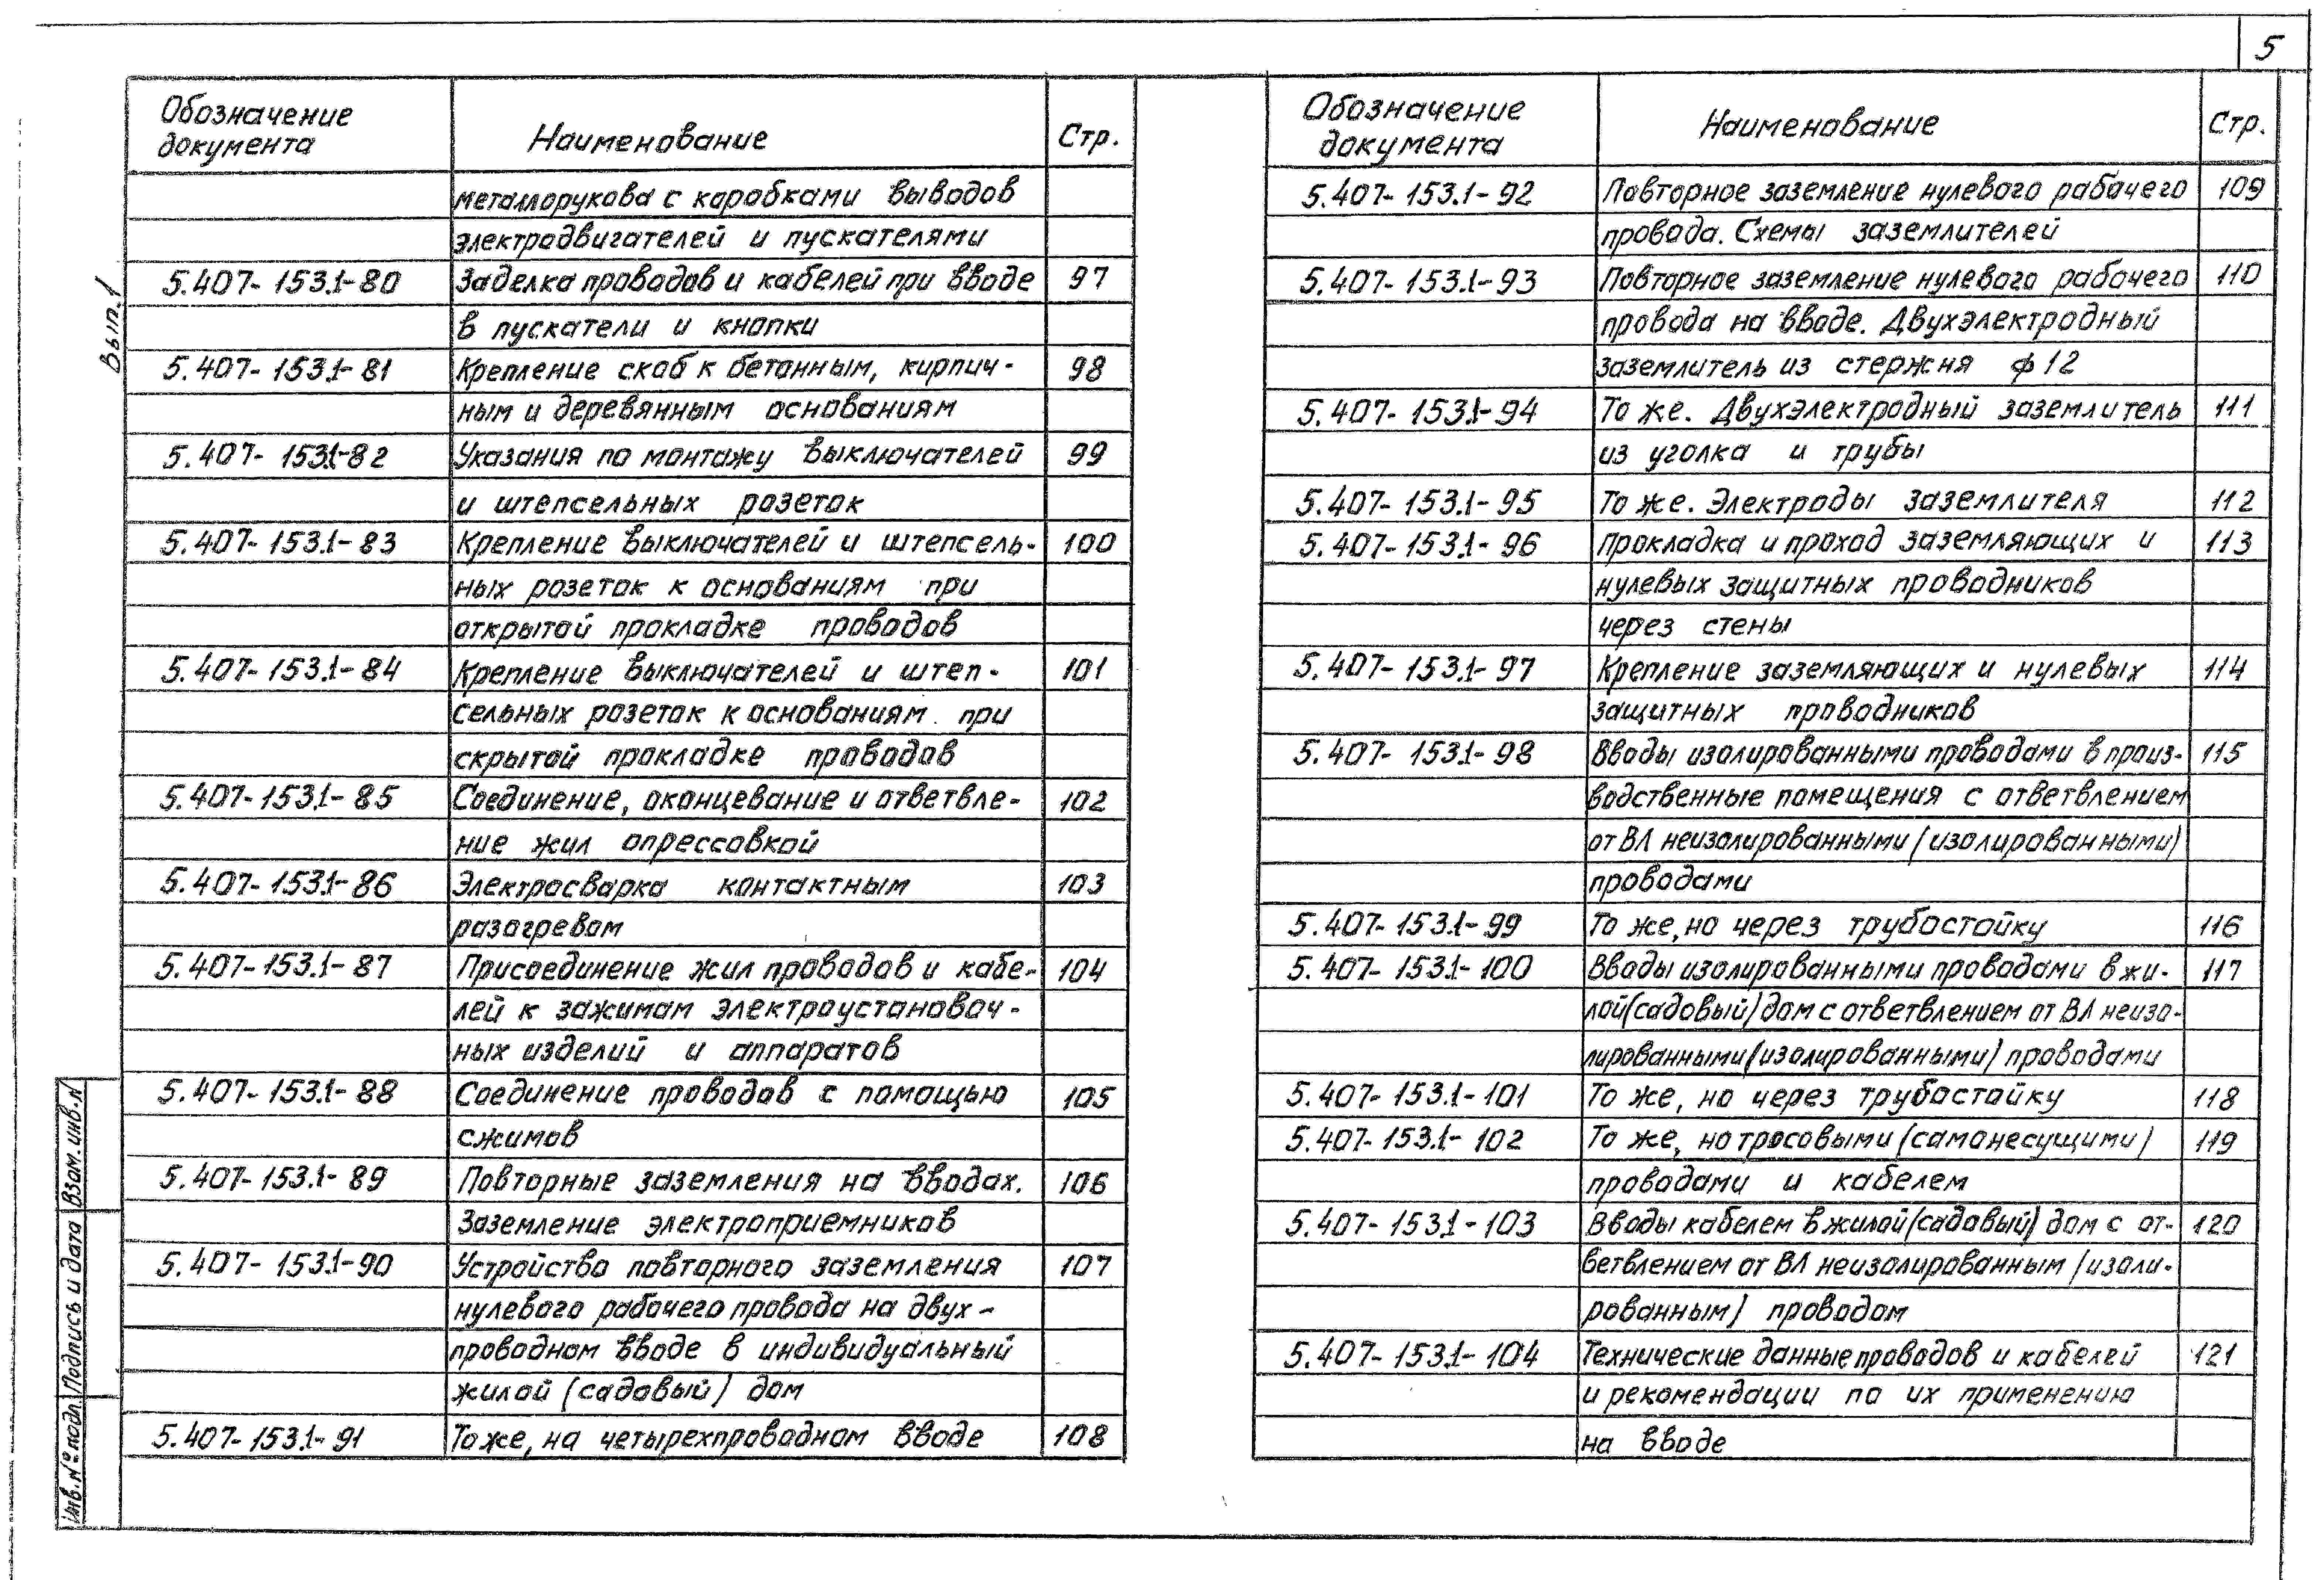 5
Вып.1
Обозначение документа Наименование Стр.
металлорукова с коробками выводов
электродвигателей и пускателями
5.407-153.1-80 Заделка проводов и кабелей при вводе 97
в пускатели и кнопки
5.407-153.1-81 Крепление скоб к бетонным, кирпич- 98
ным и деревянным основаниям
5.407-153.1-82 Указания по монтажу выключателей 99
и штепсельных розеток
5.407-153.1-83 Крепление выключателей и штепсель- 100
ных розеток к основаниям при
открытой прокладке проводов
5.407-153.1-84 Крепление выключателей и штеп- 101
сельных розеток к основаниям при
скрытой прокладке проводов
5.407-153.1-85 Соединение, оконцевание и ответвле- 102
ние жил опрессовкой
5.407-153.1-86 Электросварка контактным 103
разогревом
5.407-153.1-87 Присоединение жил проводов и кабе- 104
лей к зажимам электроустановоч-
ных изделий и аппаратов
5.407-153.1-88 Соединение проводов с помощью 105
сжимов
5.407-153.1-89 Повторные заземления на вводах. 106
Заземление электроприемников
5.407-153.1-90 Устройство повторного заземления 107
нулевого рабочего провода на двух-
проводном вводе в индивидуальный
жилой (садовый) дом
5.407-153.1-91 То же, на четырехпроводном вводе 108
Обозначение документа Наименование Стр.
5.407-153.1-92 Повторное заземление нулевого рабочего 109
провода. Схемы заземлителей
5.407-153.1-93 Повторное заземление нулевого рабочего 110
провода на вводе. Двухэлектродный
заземлитель из стержня ф12
5.407-153.1-94 То же. Двухэлектродный заземлитель 111
из уголка и трубы
5.407-153.1-95 То же. Электроды заземлителя 112
5.407-153.1-96 Прокладка и проход заземляющих и 113
нулевых защитных проводников
через стены
5.407-153.1-97 Крепление заземляющих и нулевых 114
защитных проводников
5.407-153.1-98 Вводы изолированными проводами в произ- 115
водственные помещения с ответвлением
от ВЛ неизолированными (изолированными)
проводами
5.407-153.1-99 То же, но через трубостойку 116
5.407-153.1-100 Вводы изолированными проводами в жи- 117
лой (садовый) дом с ответвлением от ВЛ неизо-
лированными (изолированными) проводами
5.407-153.1-101 То же, но через трубостойку 118
5.407-153.1-102 То же, но тросовыми (самонесущими) 119
проводами и кабелем
5.407-153.1-103 Вводы кабелем в жилой (садовый) дом с от- 120
ветвлением от ВЛ неизолированным (изоли-
рованным) проводом
5.407-153.1-104 Технические данные проводов и кабелей 121
и рекомендации по их применению
на вводе
Инв. № подл. Подпись и дата Взам. инв. N